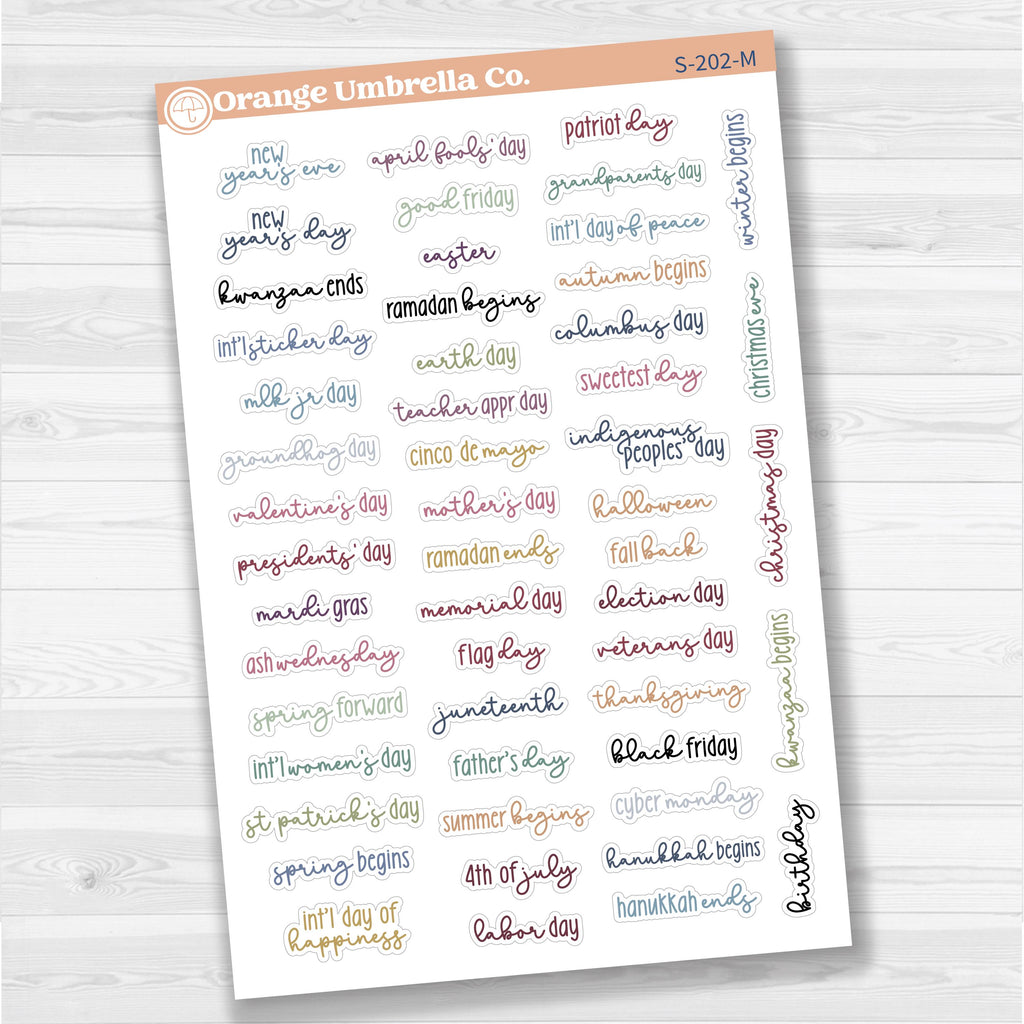 Orange Umbrella Co.
S-202-M
new
year's eve
new
year's day
kwanzaa ends
int'l sticker day
mlk jr day
groundhog day
valentine's day
presidents' day
mardi gras
ash wednesday
spring forward
int'l women's day
st patrick's day
spring begins
int'l day of
happiness
april fools' day
good friday
easter
ramadan begins
earth day
teacher appr day
cinco de mayo
mother's day
ramadan ends
memorial day
flag day
juneteenth
father's day
summer begins
4th of july
labor day
patriot day
grandparents day
int'l day of peace
autumn begins
columbus day
sweetest day
indigenous
peoples' day
halloween
fall back
election day
veterans day
thanksgiving
black friday
cyber monday
hanukkah begins
hanukkah ends
winter begins
christmas eve
christmas day
kwanzaa begins
birthday